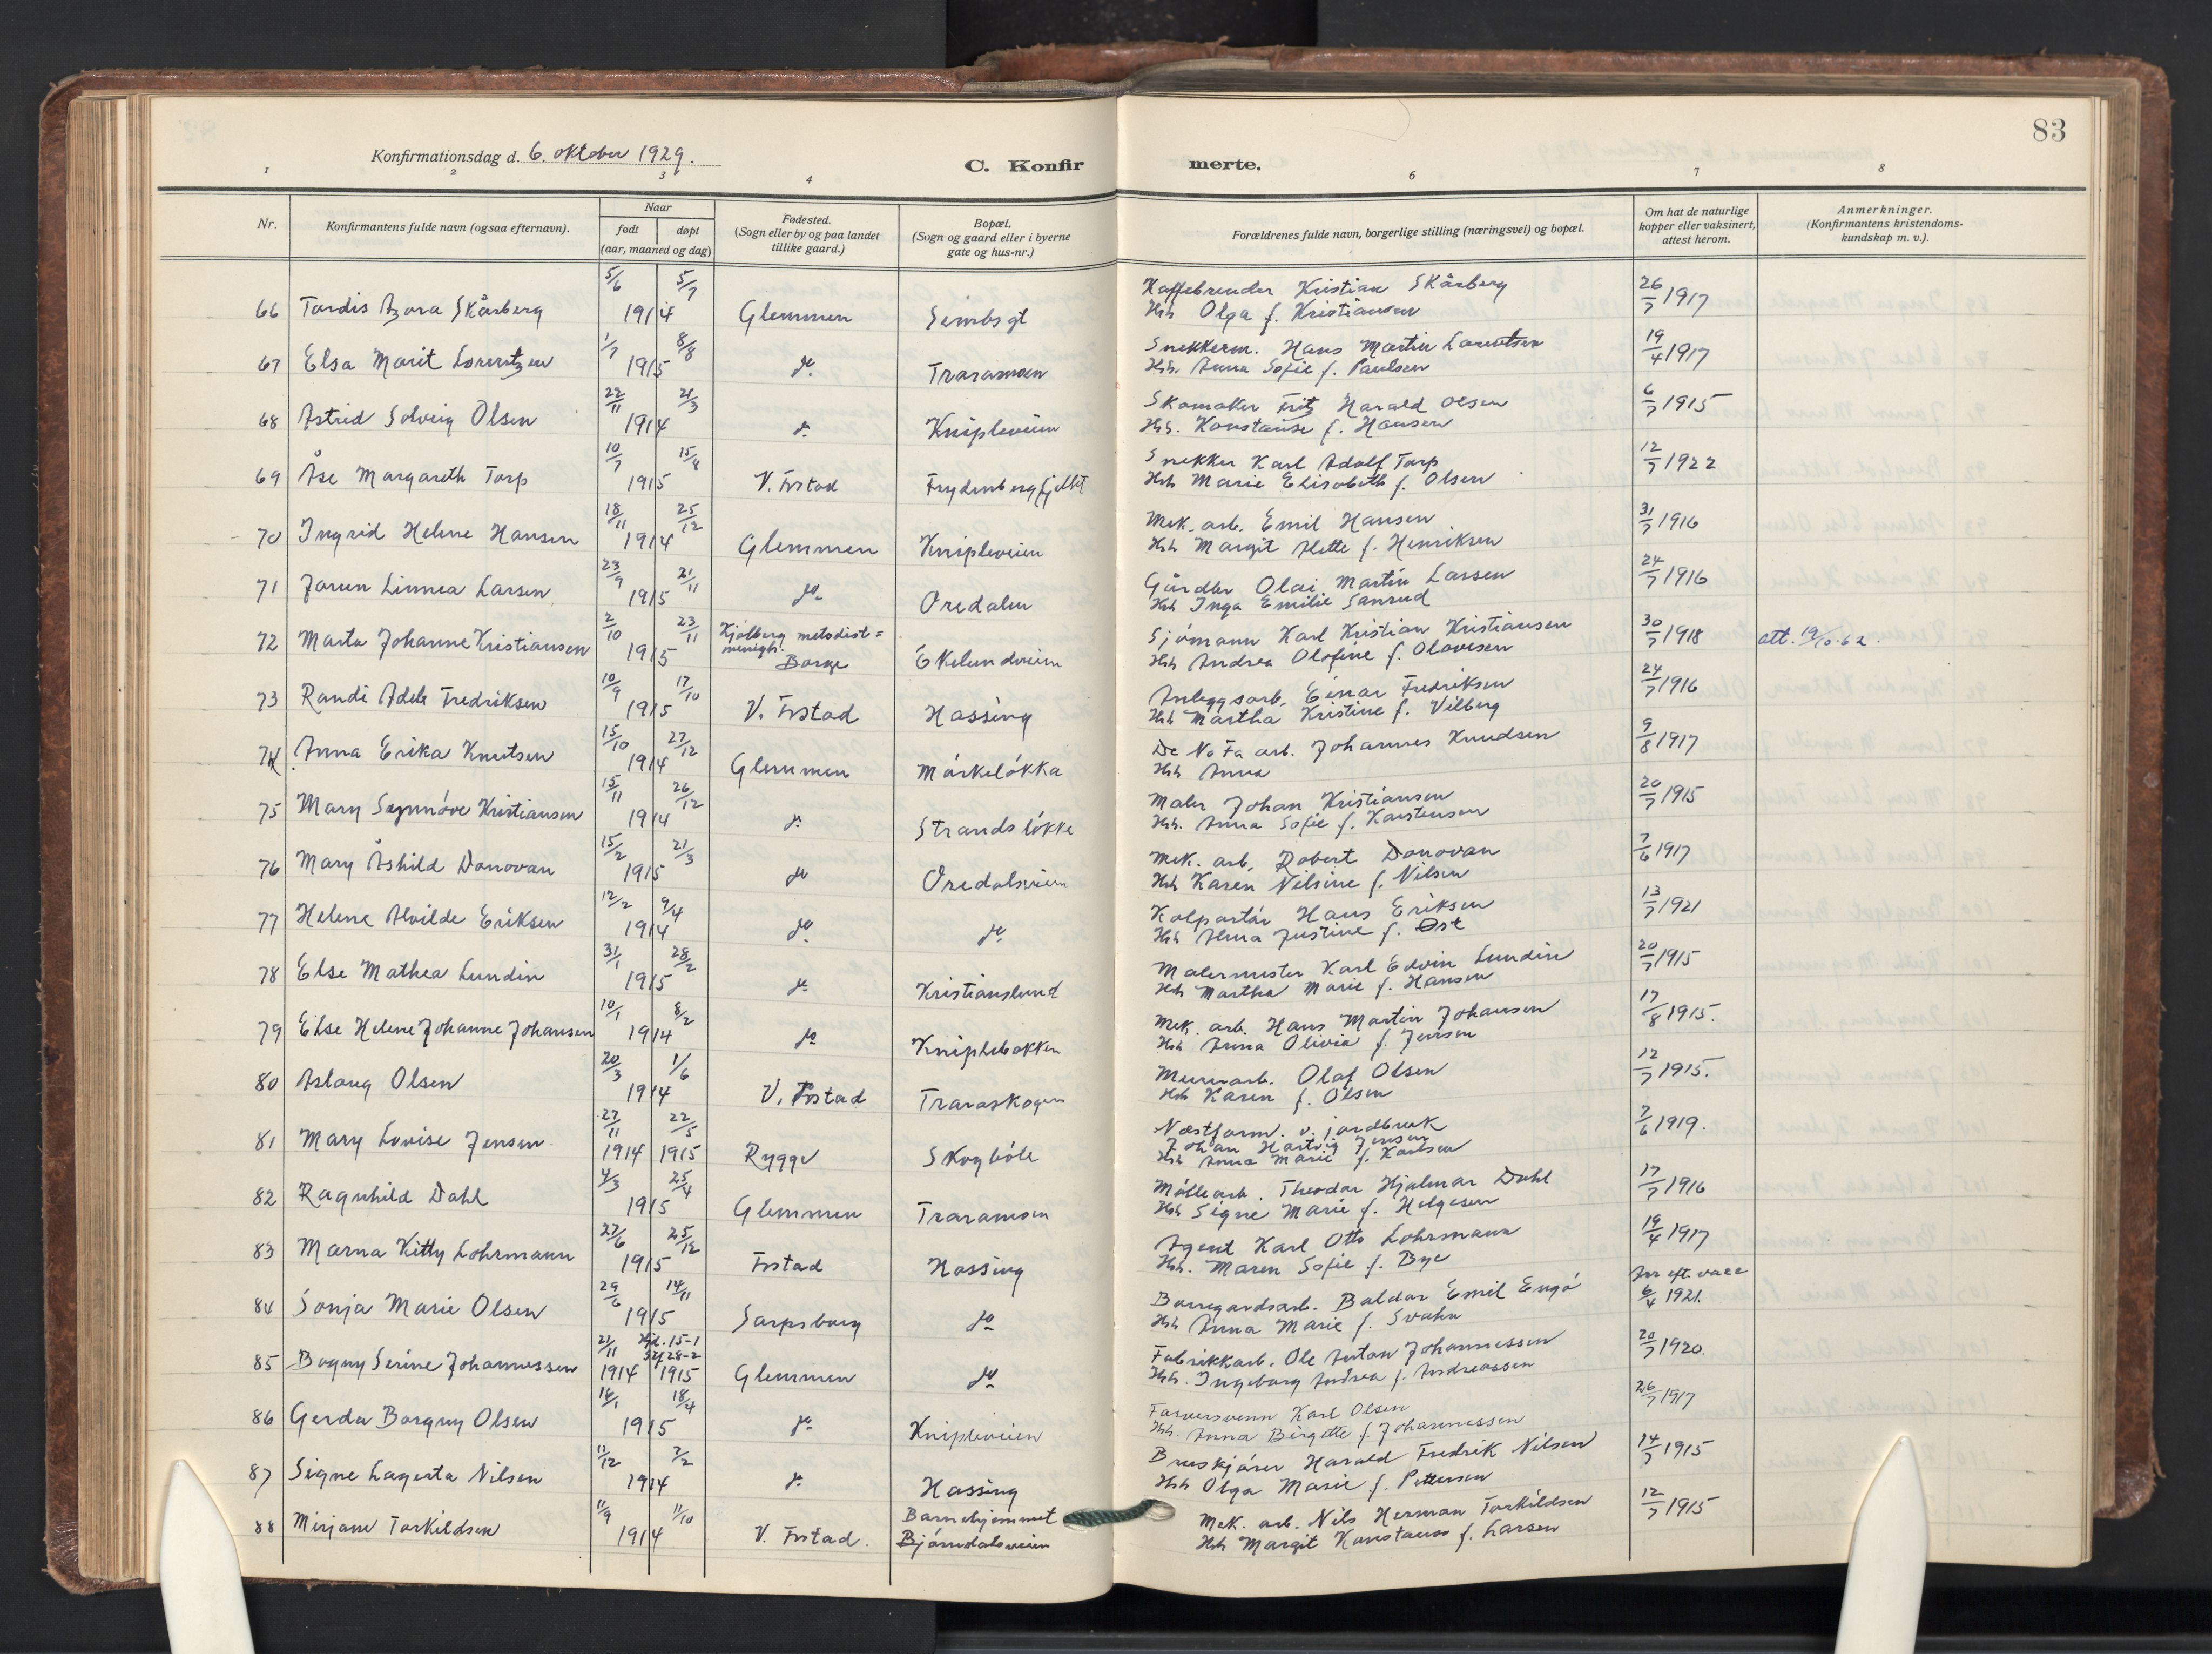 83
Konfirmationsdag d. 6. oktober 1929.
C. Konfirmerte.
1 2 3 4 6 7 8
Nr.
Konfirmantens fulde navn (ogsaa efternavn).
Naar
født døpt
(aar, maaned og dag)
Fødested.
(Sogn eller by og paa landet
tillike gaard.)
Bopæl.
(Sogn og gaard eller i byerne
gate og hus-nr.)
Forældrenes fulde navn, borgerlige stilling (næringsvei) og bopæl.
Om hat de naturlige
kopper eller vaksinert,
attest herom.
Anmerkninger.
(Konfirmantens kristendoms-
kundskap m. v.).
5/6 5/7 Kaffebrender Kristian Skårberg 26/7 1917
66 Tordis Azora Skårberg 1914 Glemmen Simbs gt Hsh Olga f. Kristiansen
1/7 8/8 Snekkerm. Hans Martin Lorentsen 19/4 1917
67 Elsa Marit Lorentzen 1915 do Traramoen Hsh. Anna Sofie f. Paulsen
22/11 21/3 Skomaker Fritz Harald Olsen 6/7 1915
68 Astrid Solveig Olsen 1914 do Knipleveien Hsh. Konstanse f. Hansen
10/7 15/8 Snekker Karl Adolf Torp 12/7 1922
69 Åse Margareth Torp 1915 V. Frstad Frydenbergfjellet Hsh Marie Elisabeth f. Olsen
18/11 25/12 Mek. arb. Emil Hansen 31/7 1916
70 Ingrid Helene Hansen 1914 Glemmen Knipleveien Hsh Margit Alette f. Henriksen
23/9 21/11 Gårdbr Olai Martin Larsen 24/7 1916
71 Jorun Linnea Larsen 1915 do Oredalen Hsh Inga Emilie Sanrud
2/10 23/11 Kjølberg metodist= Sjømann Karl Kristian Kristiansen 30/7 1918
72 Marta Johanne Kristiansen 1915 menigh. Borge Ekelundveien Hsh Andrea Olofine f. Olavesen
10/9 17/10 Anleggsarb. Einar Fredriksen 24/7 1916
73 Randi Adele Fredriksen 1915 V. Frstad Hassing Hsh Martha Kristine f. Vilberg
15/10 27/12 De No Fa arb. Johannes Knudsen 9/8 1917
74 Anna Erika Knutsen 1914 Glemmen Mørkeløkka Hsh Anna
15/11 26/12 Maler Johan Kristiansen 20/7 1915
75 Mary Synnøve Kristiansen 1914 do Strandsløkke Hsh. Anna Sofie f. Karstensen
15/2 21/3 Mek. arb. Robert Donovan 7/6 1917
76 Mary Åshild Donovan 1915 do Oredalsveien Hsh Karen Nilsine f. Nilsen
12/2 9/4 Kolportør Hans Eriksen 13/7 1921
77 Helene Alvilde Eriksen 1914 do do Hsh Alma Justine f. Øst
31/1 28/2 Malermester Karl Edvin Lundin 20/7 1915
78 Else Mathea Lundin 1915 do Kristianslund Hsh Martha Marie f. Hansen
10/1 8/2 Mek. arb. Hans Martin Johansen 17/8 1915.
79 Else Helene Johanne Johansen 1914 do Kniplebakken Hsh Anna Olivia f. Jensen
20/3 1/6 Murerarb. Olaf Olsen 12/7 1915.
80 Aslaug Olsen 1914 V. Frstad Traraskogen Hsh Karen f. Olsen
27/11 22/5 Næstform. v. jordbruk 7/6 1919.
81 Mary Lovise Jensen 1914 1915 Rygge Skogbøle Johan Hartvig Jensen
Hsh Anna Marie f. Karlsen
4/3 25/4 Mølle arb. Theodor Hjalmar Dahl 17/7 1916
82 Ragnhild Dahl 1915 Glemmen Traramoen Hsh Signe Marie f. Helgesen
27/6 25/12 Agent Karl Otto Lohrmann 19/4 1917
83 Marna Kitty Lohrmann 1915 Frstad Hassing Hsh. Maren Sofie f. Bye
29/6 14/11 Borregardsarb. Baldar Emil Engø 6/4 1921.
84 Sonja Marie Olsen 1915 Sarpsborg do Hsh Anna Marie f. Svahn
21/11 Hjd. 15-1 28-2 Fabrikkarb. Ole Anton Johannessen 20/7 1920.
85 Bogny Serine Johannessen 1914 1915 Glemmen do Hsh. Ingeborg Andrea f. Andreassen
14/1 18/4 Farversvenn Karl Olsen 26/7 1917
86 Gerda Borgny Olsen 1915 do Knipleveien Hsh. Anna Birgitte f. Johannessen
11/12 7/2 Bruskjører Harald Fredrik Nilsen 14/7 1915
87 Signe Lagerta Nilsen 1914 do Hassing Hsh Olga Marie f. Pettersen
11/9 11/10 Barnehjemmet Mek. arb. Nils Herman Torkildsen 12/7 1915
88 Mirjam Torkildsen 1914 V. Frstad. Bjørndalsveien Hsh Margit Konstanse f. Larsen